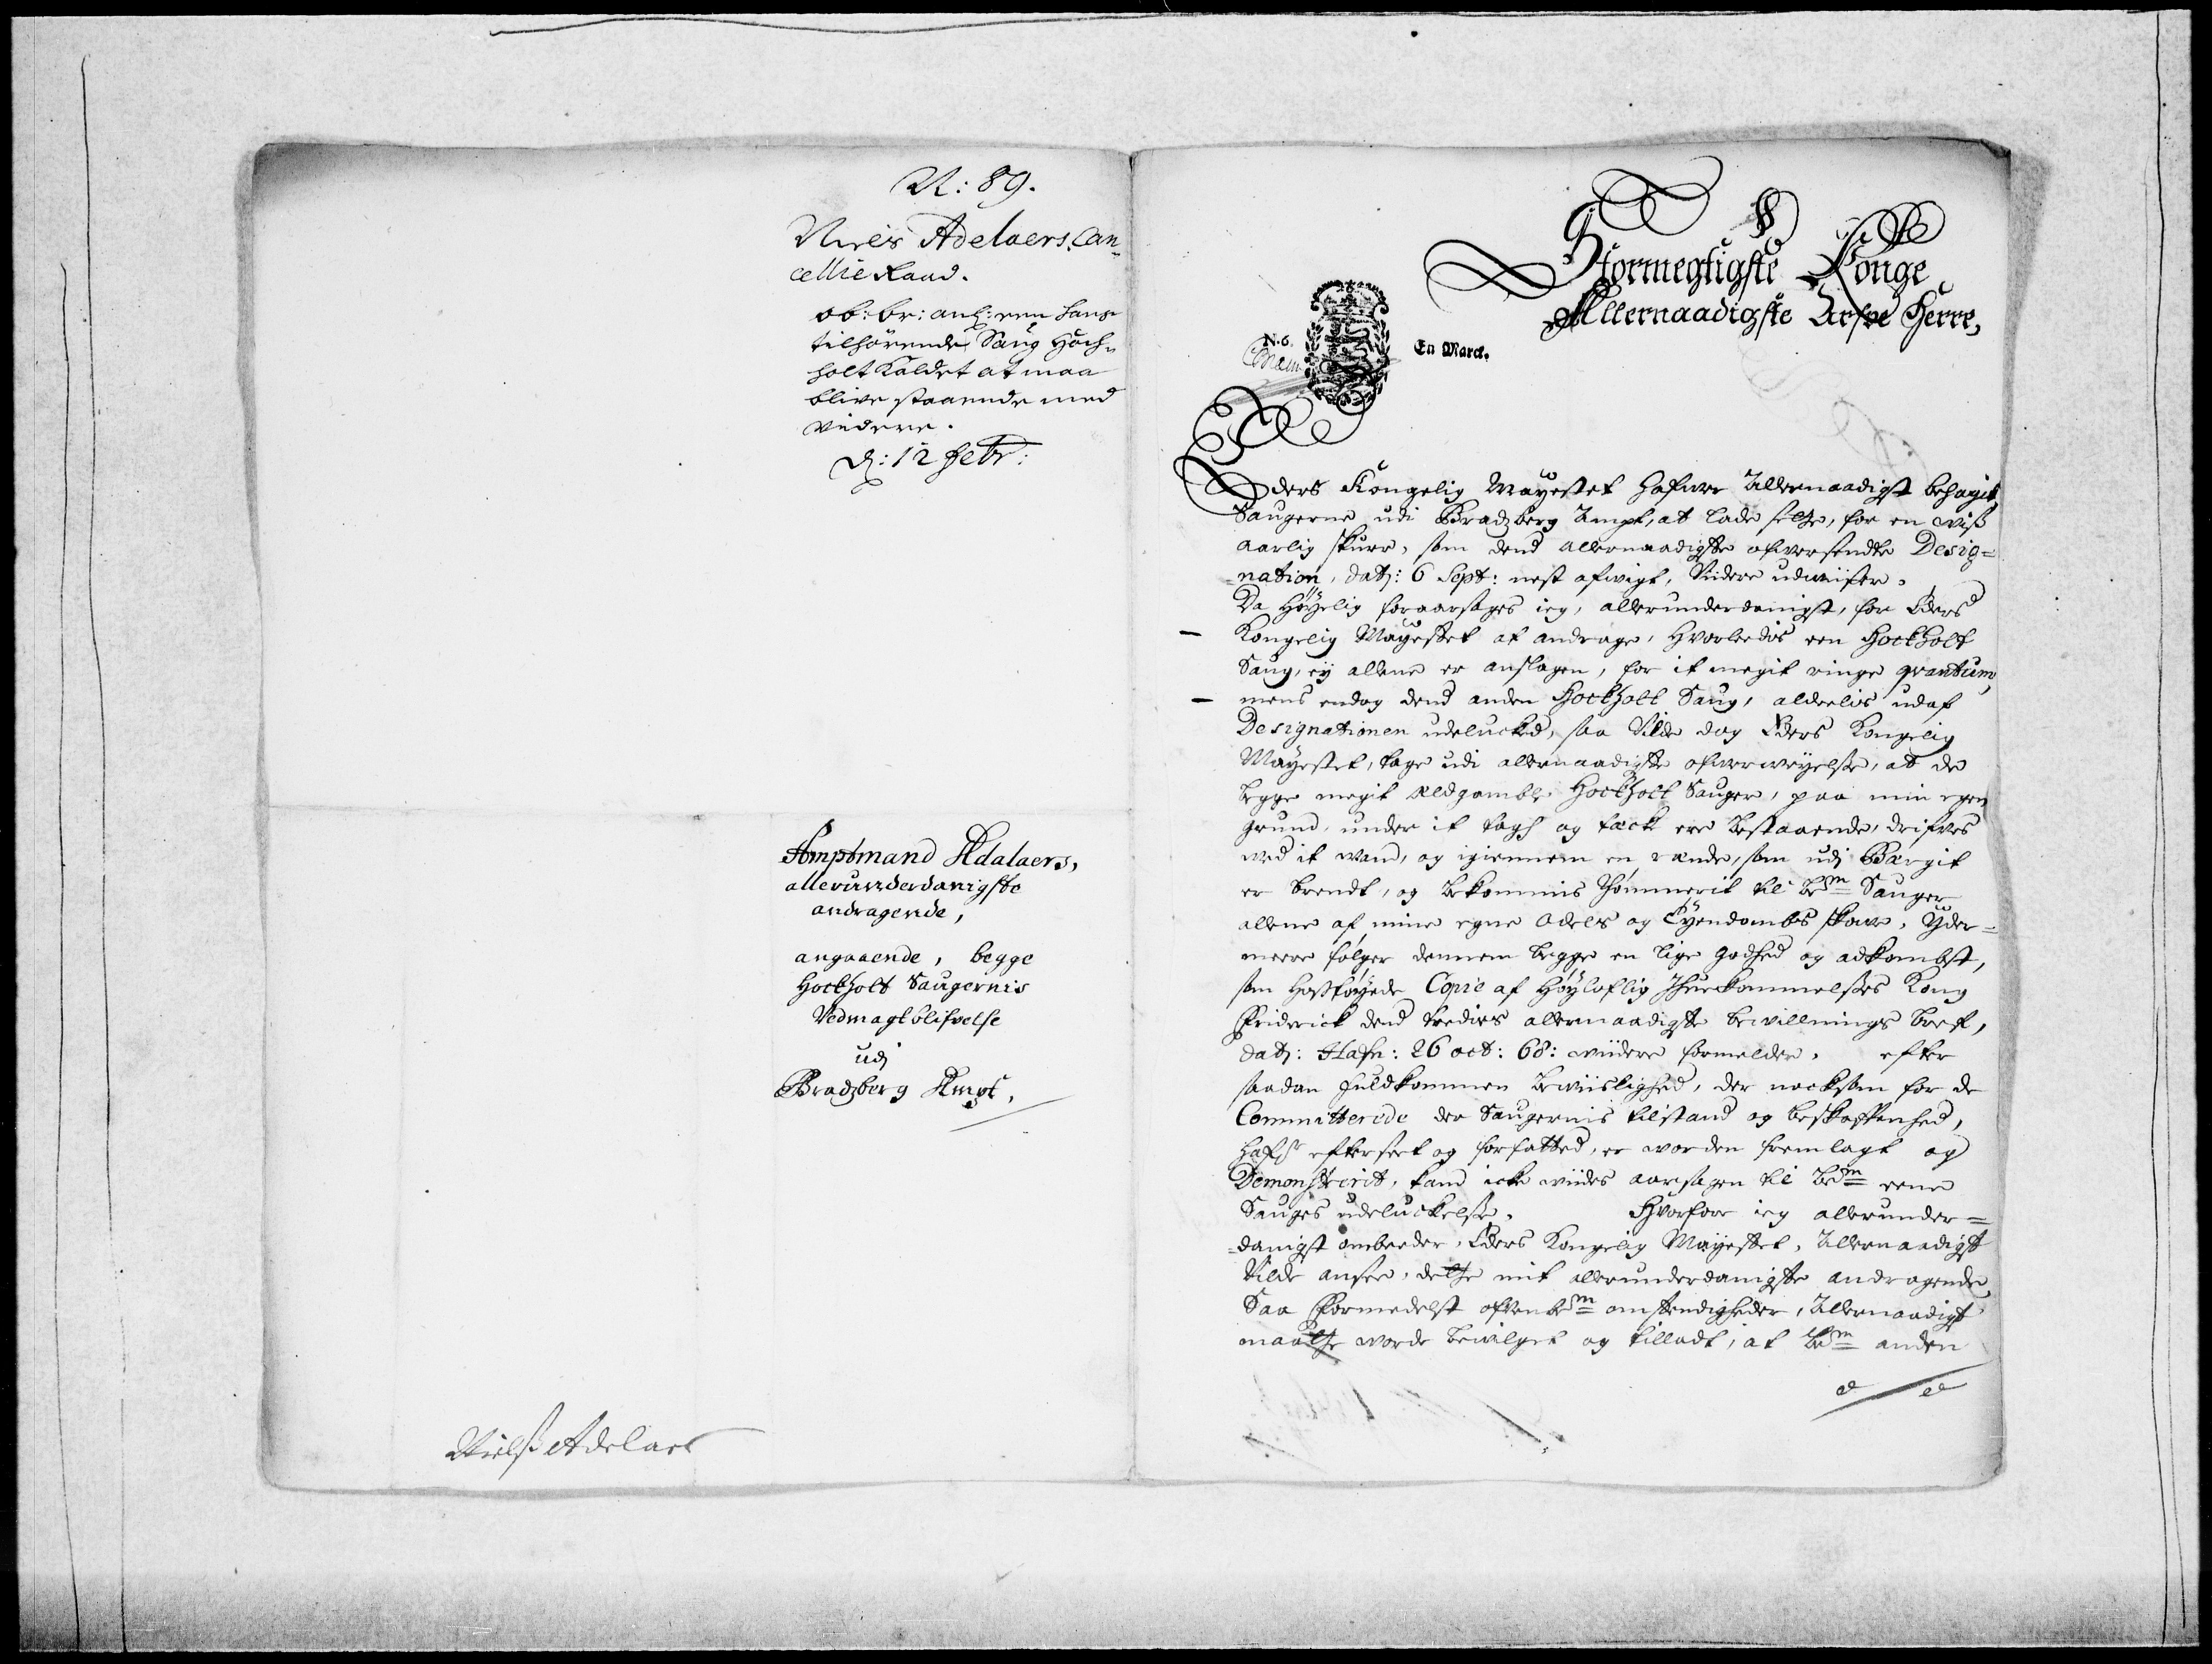 N: 89.
Niels Adelaers. Can-
cellie Raad.
ob: br: ang: een hans
tilhörende Saug Hoch-
holt Kaldet at maa
blive staaende med
videre.
d: 12 Febr:
Amptmand Adalaers,
allerunderdanigste
andragende,
angaaende, begge
Hockholt Saugernis
Vedmagtblifvelse
udj
Bradzberg Ampt.
Nielß Adelaer
Stormegtigste Konge
Allernaadigste Arfve Herre,
N.6.
En Marck.
Eders Kongelig Mayestet hafver Allernaadigst behagit,
Saugerne udi Bradzberg Ampt, at lade sette, for en wiß
aarlig skurr, som dend allernaadigste ofversendte Desig=
=nation, dat: 6 Sept: nest afvigt, Viidere udwiiser.
Da Høyelig foraarsages ieg, allerunderdanigst, for Eders
Kongelig Mayestet at andrage, Hvorledis een Hockholt
Saug, ey allene er anslagen, for it megit ringe qvantum,
mens endog dend anden Hockholt Saug, aldeelis udaf
Designationen udelucked, saa Vilde dog Eders Kongelig
Mayestet, tage udi allernaadigste ofverweyelse, at de
begge megit Ældgamble Hockholt Sauger, paa min egen
grund, under it tagh og tæck ere bestaaende, drifves
med it wand, og igiennem en rænde, som udj Bærgit
er brendt, og bekommis Thømmerit til be^m Sauger
allene af mine egne Odels og Eyendombs skove, Yder=
meere følger dennem begge en lige godhed og adkombst,
som Hoßføyede Copie af Høyloflig Ihuekommelses Kong
Friderick dend tredies allernaadigste bevillnings bref,
dat: Hafn: 26 oct: 68: wiidere formelder. efter
saadan fuldkommen bewiislighed, der nocksom for de
Committerede der Saugernis tilstand og beskaffenhed,
hafr efterseet og forfatted, er worden fremlagt og
Demonstrerit, kand icke wiides aarsagen til be^m eene
Sauges udeluckelse. Hvorfore ieg allerunder=
=danigst ombeeder, Eders Kongelig Mayestet, Allernaadigst
Vilde ansee, dette mit allerunderdanigste andragende
Saa Formedelst ofvenbe^m omstendigheder, Allernaadigst
maatte worde bewilget og tilladt, at be^m anden